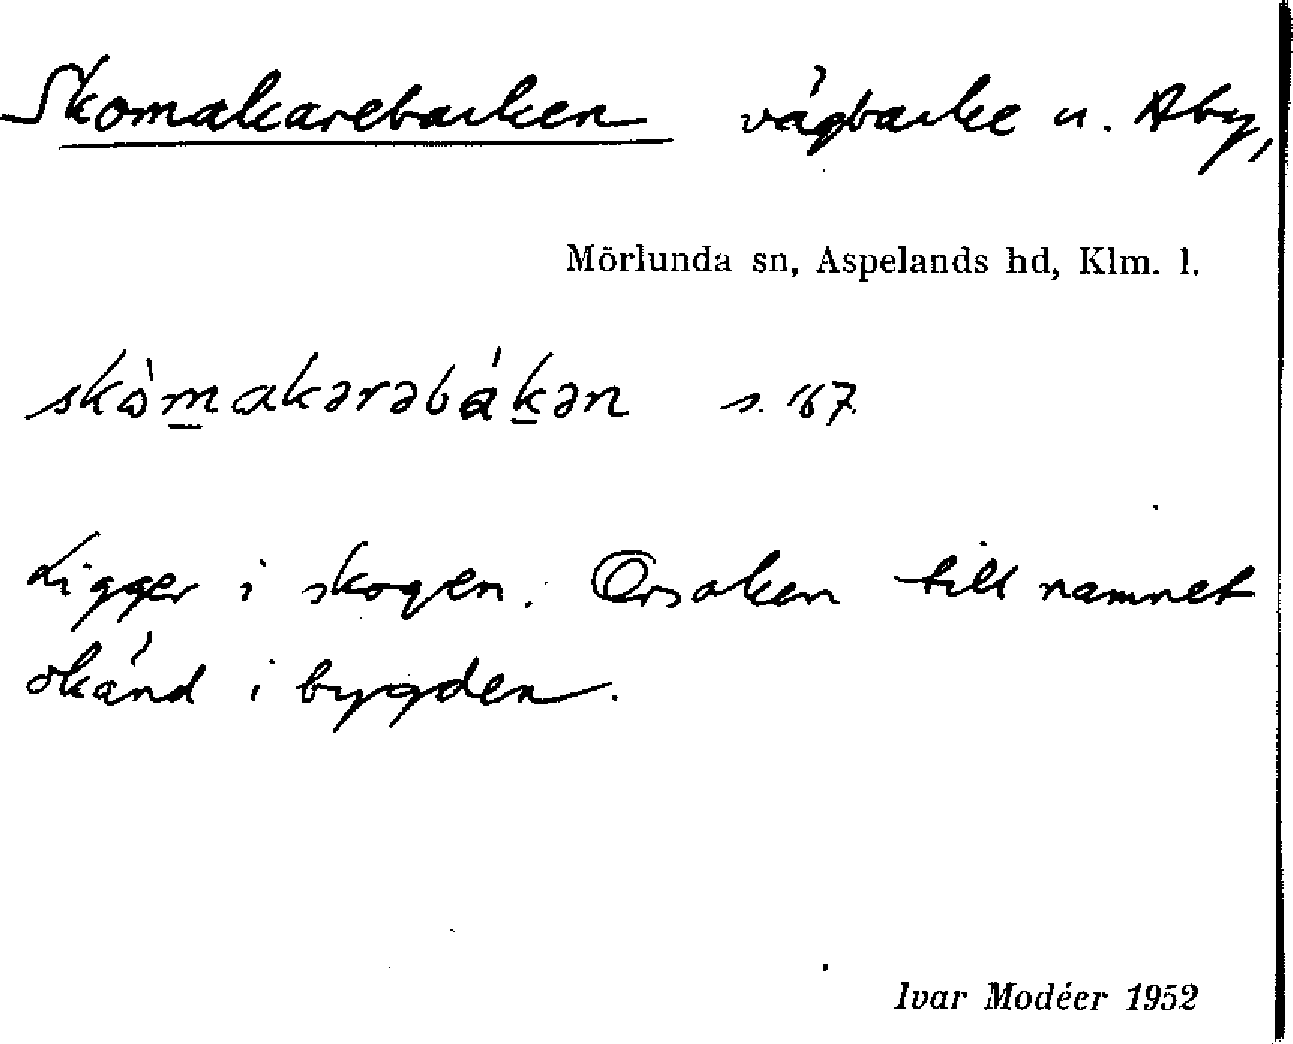 Skomakarebacken vägbacke u. Åby,
Mörlunda sn, Aspelands hd, Klm. l.
skòmakarəbákən s. 167
Ligger i skogen. Orsaken till namnet
okänd i bygden.
Ivar Modéer 1952